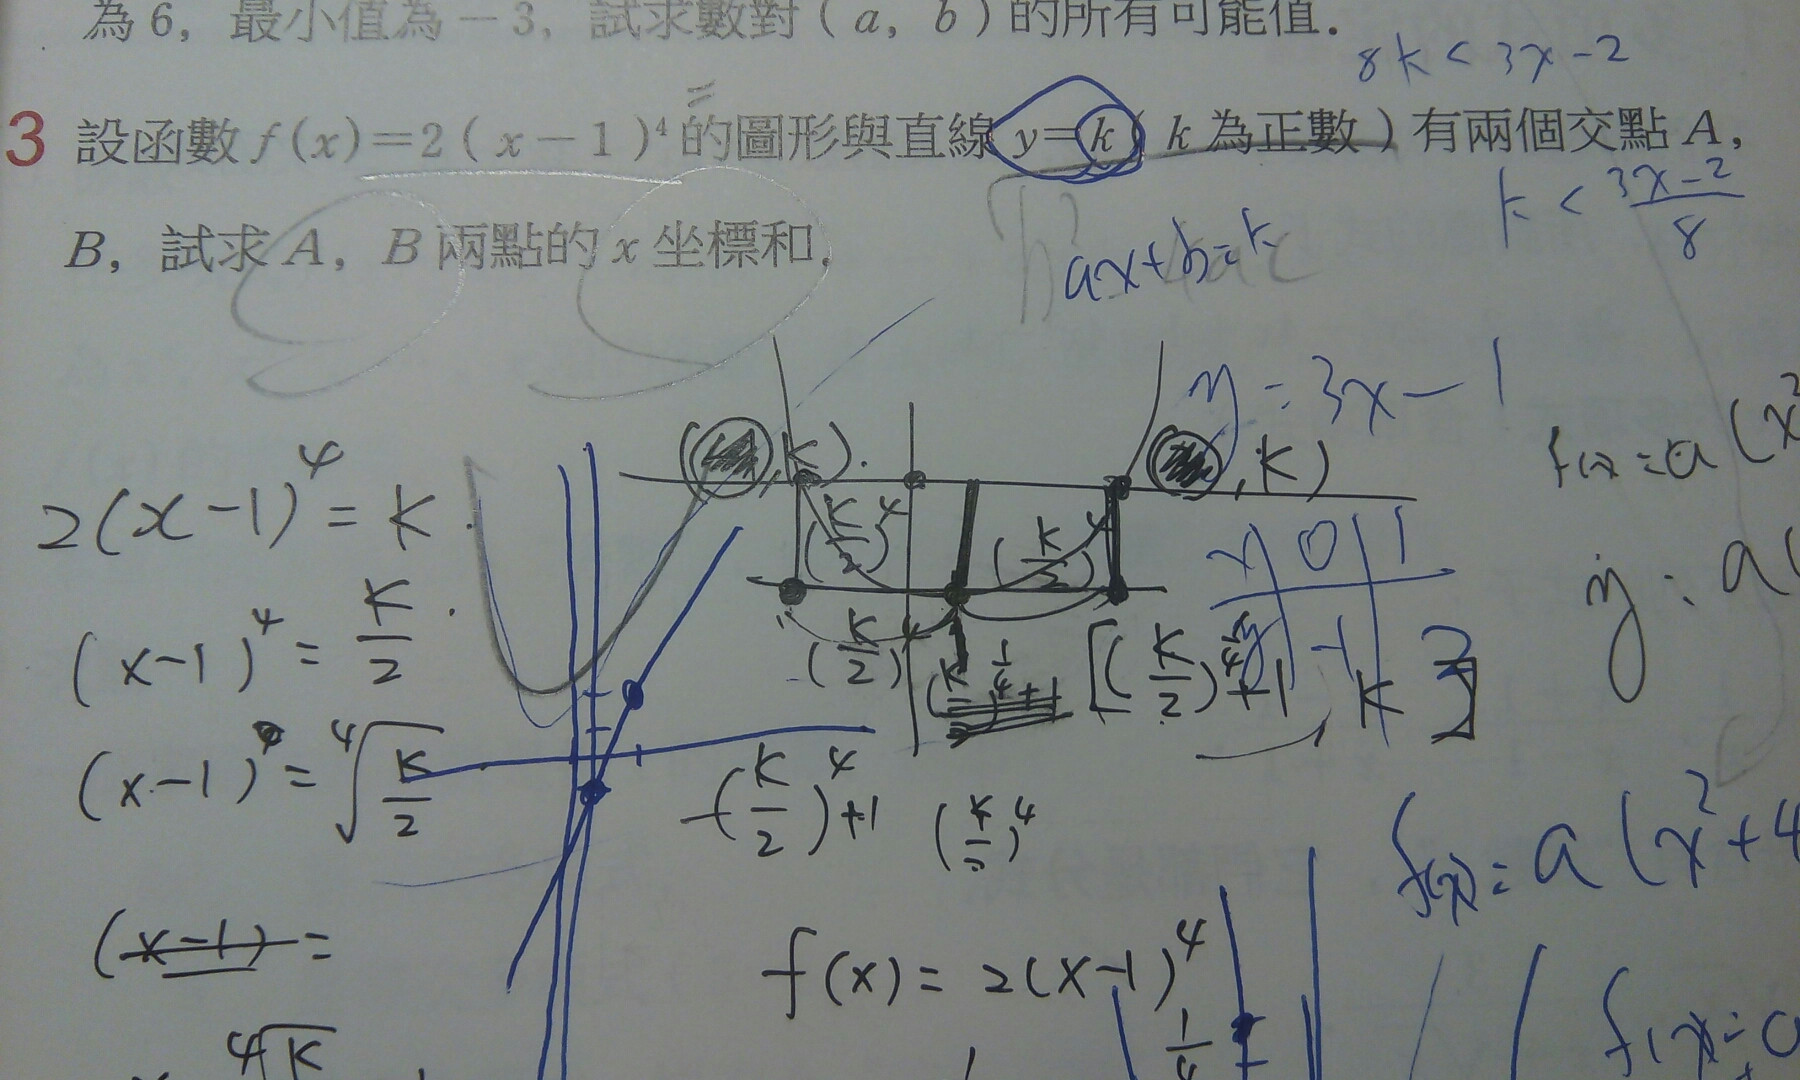 為 6，最小值為 －3，試求數對 ( a，b ) 的所有可能值．
8k < 3x - 2
3 設函數 f (x)＝2 ( x－1 )⁴ 的圖形與直線 y＝k ( k 為正數 ) 有兩個交點 A，
k < (3x-2)/8
B，試求 A，B 兩點的 x 坐標和．
ax+b=k
y = 3x - 1
2(x-1)⁴ = k
, k).
, k)
(k/2)⁴
(k/2)⁴
x 0 1
(x-1)⁴ = k/2
(k/2)⁴
[(k/2)^¼+1
k ]
(x-1) = ⁴√(k/2)
-(k/2)⁴+1
(k/2)⁴
f(x) = a(x²+4
(x-1) =
f(x) = 2(x-1)⁴
⁴√k
1/4